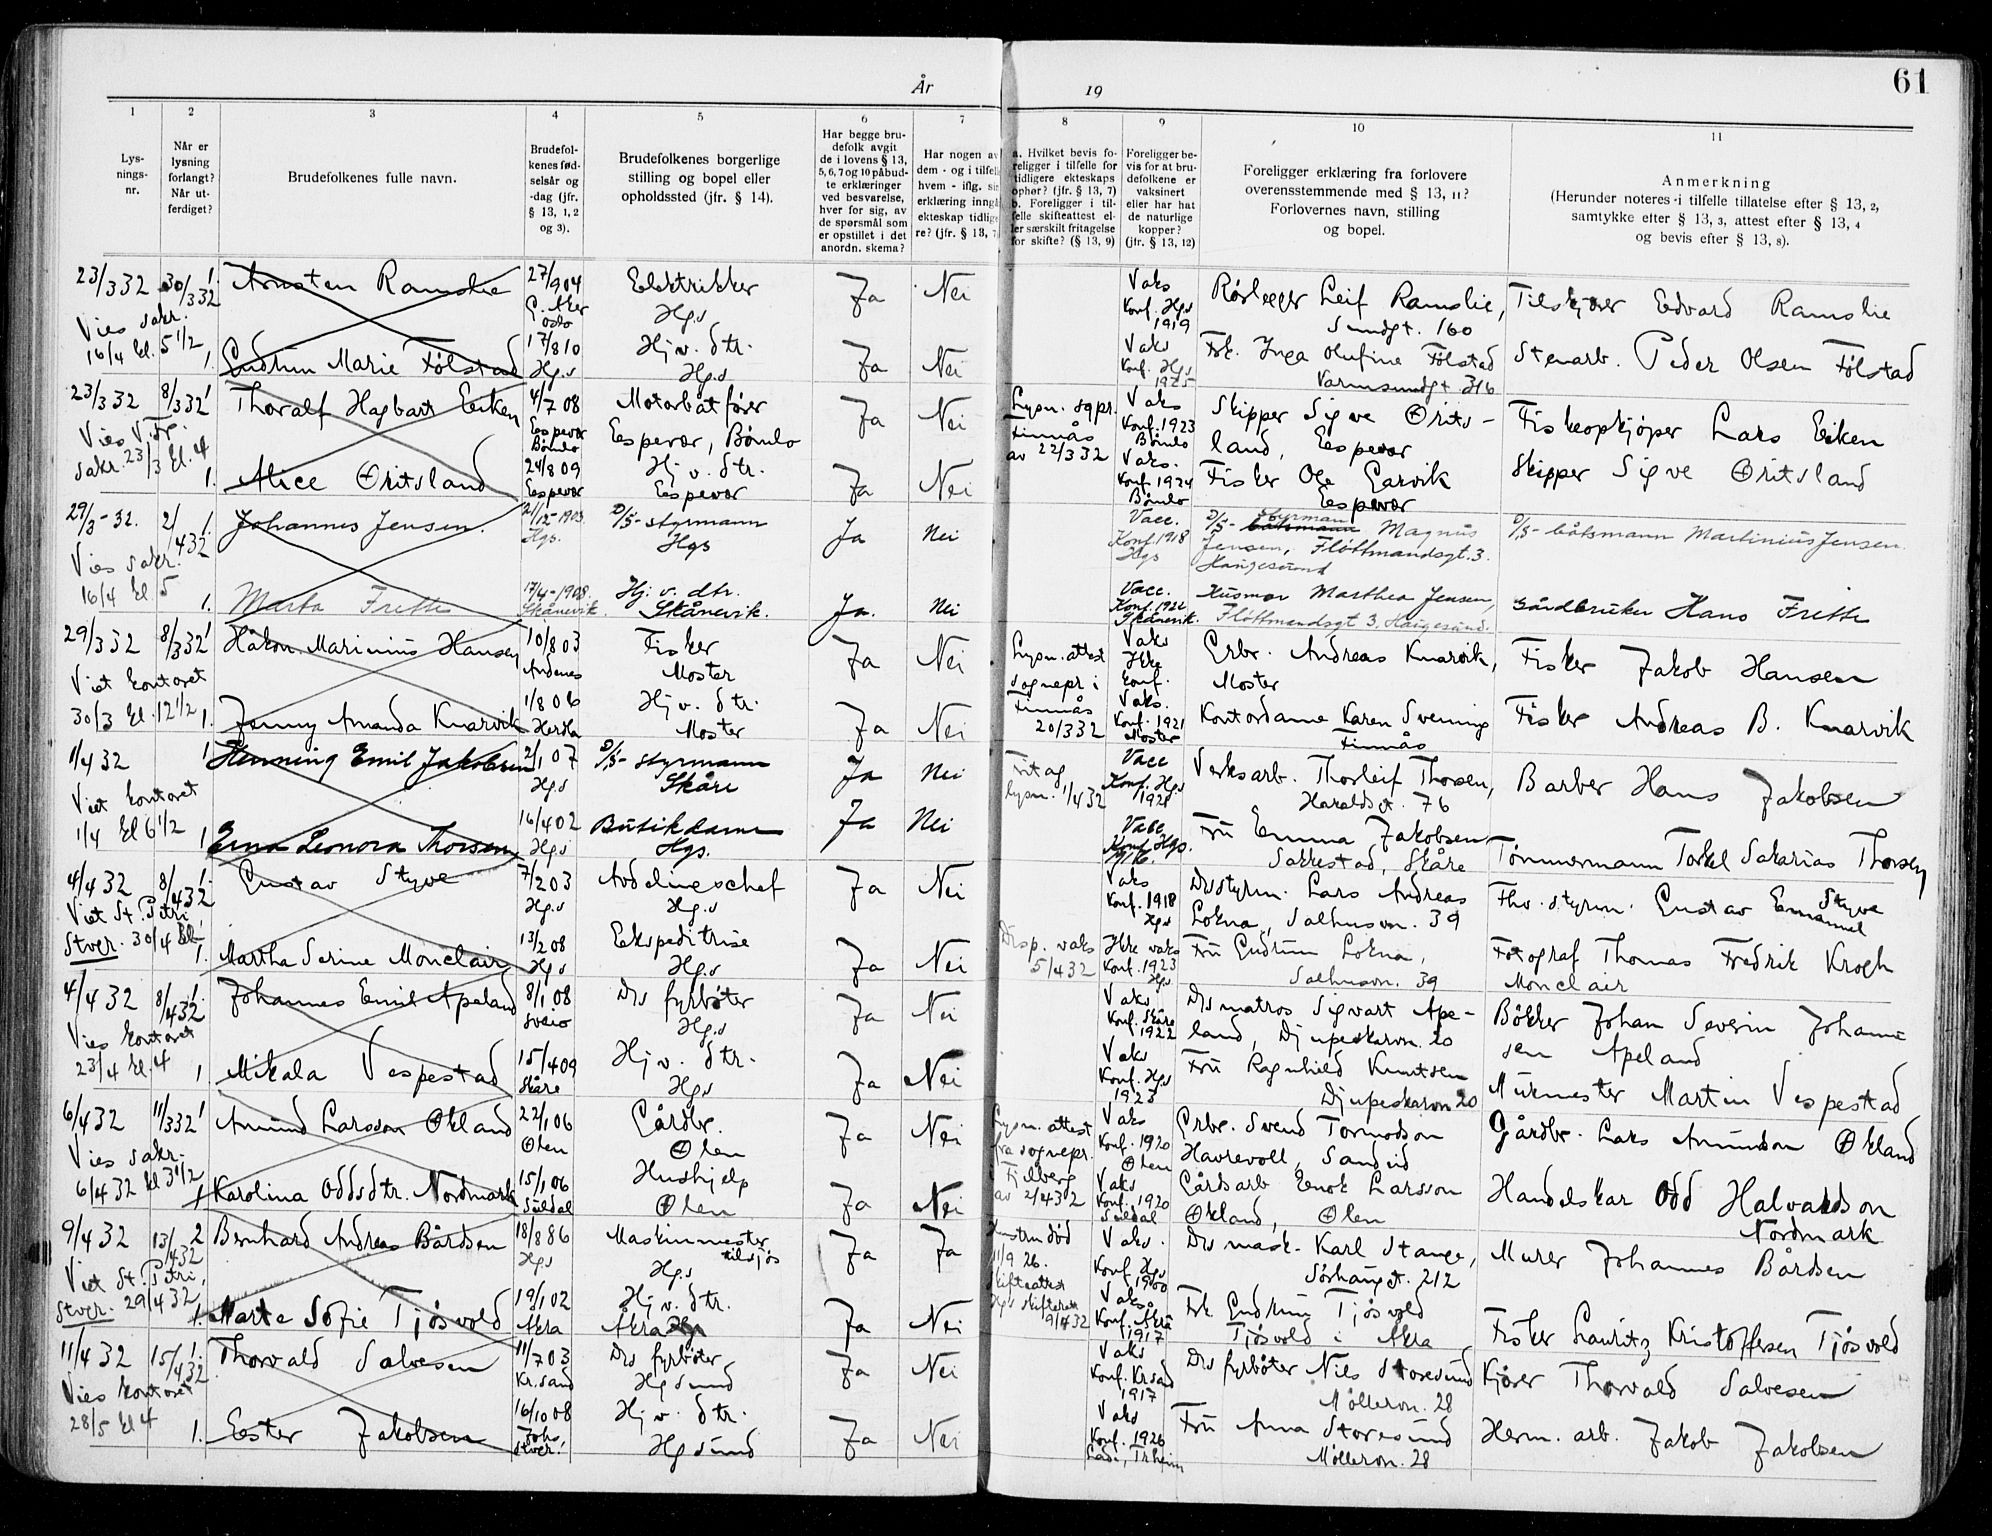 År 19 61
1 2 3 4 5 6 7 8 9 10 11
Lysningsnr.
Når er lysning forlangt? Når utferdiget?
Brudefolkenes fulle navn.
Brudefolkenes fødselsår og -dag (jfr. § 13, 1, 2 og 3).
Brudefolkenes borgerlige stilling og bopel eller opholdssted (jfr. § 14).
Har begge brudefolk avgit de i lovens § 13, 5, 6, 7 og 10 påbudte erklæringer ved besvarelse, hver for sig, av de spørsmål som er opstillet i det anordn. skema?
Har nogen av dem - og i tilfelle hvem - iflg. sin erklæring inngå ekteskap tidligere? (jfr. § 13, 7
a. Hvilket bevis foreligger i tilfelle for tidligere ekteskaps ophør? (jfr. § 13, 7) b. Foreligger i tilfelle skifteattest eller særskilt fritagelse for skifte? (§ 13, 9)
Foreligger bevis for at brudefolkene er vaksinert eller har hat de naturlige kopper? (jfr. § 13, 12)
Foreligger erklæring fra forlovere overensstemmende med § 13, 11? Forlovernes navn, stilling og bopel.
Anmerkning (Herunder noteres i tilfelle tillatelse efter § 13, 2, samtykke efter § 13, 3, attest efter § 13, 4 og bevis efter § 13, 8).
23/3 32 30/3 32 1. Arnsten Ramslie 27/9 04 G. Aker Oslo Elektrikker Hgs Ja Nei Vaks Konf. Hgs 1919 Rørlegger Leif Ramslie, Sundgt. 160 Tilskjærer Edvard Ramslie
Vies sakr. 16/4 kl. 5 1/2 1. Gudrun Marie Følstad 17/8 10 Hgs Hj. v. dtr. Hgs Ja Nei Vaks Konf. Hgs 1925 Frk. Inga Olufine Følstad Varmsundgt. 316 Stenarb. Peder Olsen Følstad
23/3 32 8/3 32 1 Thoralf Hagbart Eiken 4/7 08 Espevær Bømlo Motorbåtfører Espevær, Bømlo Ja Nei Lysn. sgpr. Finnås av 22/3 32 Vaks Konf. 1923 Bømlo Skipper Sigve Øritsland, Espevær Fiskeopkjøper Lars Eiken
Vies V. Fr. sakr. 23/3 kl. 4 1. Alice Øritsland 24/8 09 Espevær Hj. v. dtr. Espevær Ja Nei Vaks. Konf. 1924 Bømlo Fisker Ole Garvik Espevær Skipper Sigve Øritsland
29/3 - 32. 2/4 32 1. Johannes Jensen. 21/12-1903 Hgs. D/S - styrmann Hgs Ja Nei Vacc. Konf. 1918 Hgs D/S - båtsmann Styrman Magnus Jensen, Fløttmandsgt. 3. Haugesund D/S - båtsmann Martinius Jensen.
Vies sakr. 16/4 kl 5 1. Marta Frette 17/4-1908. Skånevik. Hj. v. dtr. Skånevik. Ja. Nei Vacc. Konf. 1922 Skånevik. Husmor Marthea Jensen, Fløttmandsgt 3, Haugesund. Gårdbruker Hans Frette
29/3 32 8/3 32 1 Håkon Marinius Hansen 10/8 03 Andenes Fisker Moster Ja Nei Lysn. attest sognepr. i Finnås 20/3 32 Vaks Ikke konf. Grbr. Andreas Knarvik, Moster Fisker Jakob Hansen
Viet kontoret 30/3 kl. 12 1/2 1. Jenny Amanda Knarvik 1/8 06 Herdla Hj. v. dtr. Moster Ja Nei Vaks. Konf. 1921 Moster Kontordame Karen Svening Finnås Fisker Andreas B. Knarvik
1/4 32 1 Henning Emil Jakobsen 2/1 07 Hgs D/S - styrmann Skåre Ja Nei Fritag lysn. 1/4 32 Vacc Konf. Hgs 1921 Verksarb. Thorleif Thorsen, Haraldsgt. 76 Barber Hans Jakobsen
Viet kontoret 1/4 kl 6 1/2 1 Erna Leonora Thorsen 16/4 02 Hgs Butikdame Hgs. Ja Nei Vacc Konf. Hgs. 1916. Fru Emma Jakobsen Sakkestad, Skåre Tømmermann Torkel Sakarias Thorsen
4/4 32 8/4 32 1. Gustav Styve 7/2 03 Hgs Avdelingschef Hgs Ja Nei Vaks Konf. 1918 Hgs Drsstyrm. Lars Andreas Lokna, Salhusvn. 39 Fhv. styrm. Gustav Emanuel Styve
Viet St. Petri, Stvgr. 30/4 kl 1. Martha Serine Monclair 13/2 08 Hgs Ekspeditrise Hgs Ja Nei Disp. vaks 5/4 32 Ikke vaks Konf. 1923 Hgs Fru Gudrun Lokna, Salhusvn. 39 Fotograf Thomas Fredrik Krogh Monclair
4/4 32 8/4 32 1. Johannes Emil Apeland 8/1 08 Sveio Drs fyrbøter Hgs Ja Nei Vaks Konf. Skåre 1922 Drs matros Sigvart Apeland, Djupeskarvn. 20 Bøkker Johan Severin Johannesen Apeland
Vies kontoret 23/4 kl. 4 1 Mikala Vespestad 15/4 09 Skåre Hj. v. dtr. Hgs Ja Nei Vaks Konf. Hgs 1923 Fru Ragnhild Knutsen Djupeskarvn 20 Murmester Martin Vespestad
6/4 32 11/3 32 1 Amund Larsson Økland 22/1 06 Ølen Gårdbr. Ølen Ja Nei Lysn. attest fra sognepr. i Fjelberg av 2/4 32 Vaks Konf. 1920 Ølen Grbr. Svend Tormodson Havrevoll, Sandeid Gårdbr. Lars Amundson Økland
Vies sakr. 6/4 32 kl 3 1/2 1 Karolina Oddsdtr. Nordmark 15/1 06 Suldal Hushjelp Ølen Ja Nei Vaks Konf. 1920 Suldal Gårdsarb Enok Larsson Økland, Ølen Handelskar Odd Halvardson Nordmark
9/4 32 13/4 32 2 Bernhard Andreas Bårdsen 18/8 86 Hgs Maskinmester tilsjøs Hgs Ja Ja Hustru død 11/9 26. Skifteattest Hgs skifterett 9/4 32 Vaks. Konf. Hgs 1900 Drs mask. Karl Stange, Sørhauggt. 212 Murer Johannes Bårdsen
Viet St. Petri, Stvgr. 29/4 32 1. Marta Sofie Tjøsvold 19/1 02 Åkra Hj. v. dtr. Åkra Ja Nei Vaks Konf. Åkra 1917 Frk. Gudrun Tjøsvold Tjøsvold i Åkra Fisker Lauritz Kristoffersen Tjøsvold
11/4 32 15/4 32 1. Thorvald Salvesen 11/7 03 Kr.sand Drs fyrbøter Hgsund Ja Nei Vaks Konf. Kr.sand 1917 Drs fyrbøter Nils Storesund Møllervn. 28 Kjører Thorvald Salvesen
Vies kontoret 28/5 kl 4 1. Ester Jakobsen 16/10 08 Johs. Stvgr. Hj. v. dtr. Hgsund Ja Nei Vaks Konf. 1926 Lade, Tr.heim Fru Anna Storesund Møllervn. 28 Herm. arb. Jakob Jakobsen